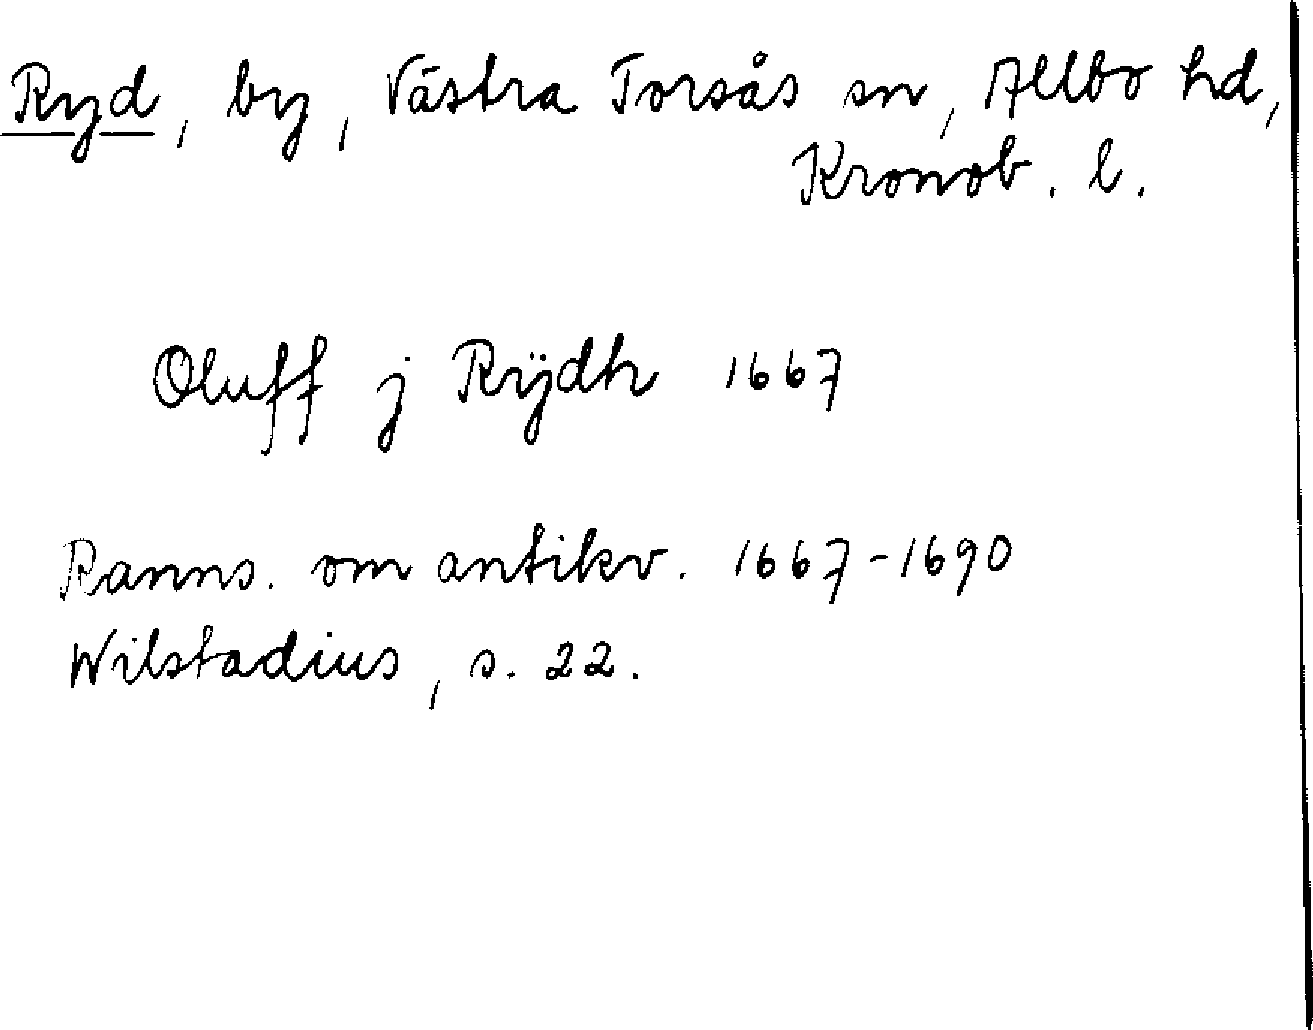 Ryd, by, Västra Torsås sn, Allbo hd,
Kronob. l.
Oluff j Rÿdh 1667
Ranns. om antikv. 1667-1690
Wilstadius, s. 22.